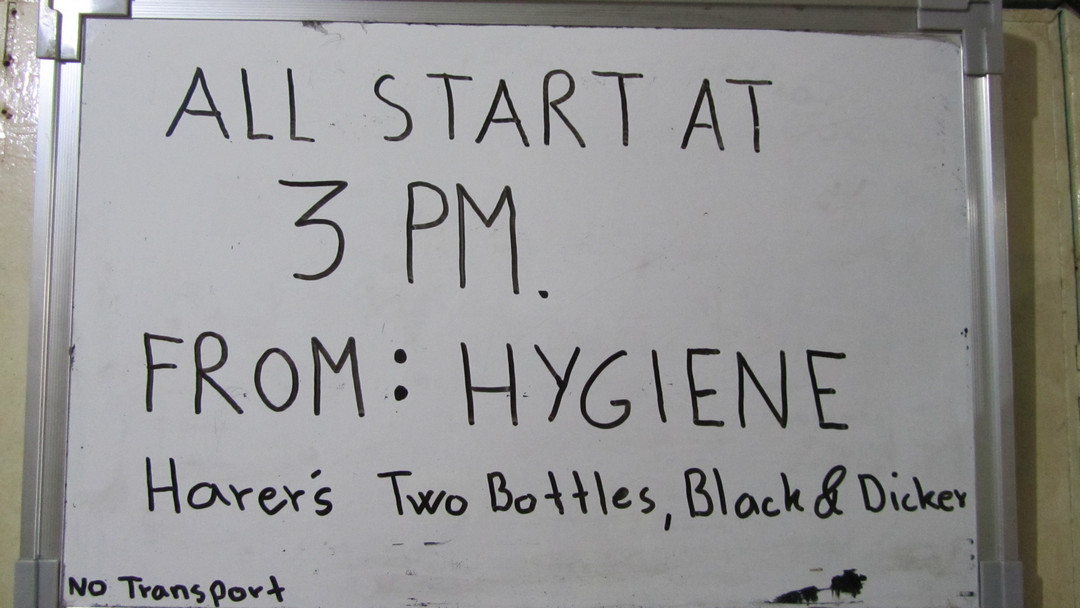 ALL START AT
3 PM.
FROM: HYGIENE
Harer's Two Bottles, Black & Dicker
No Transport